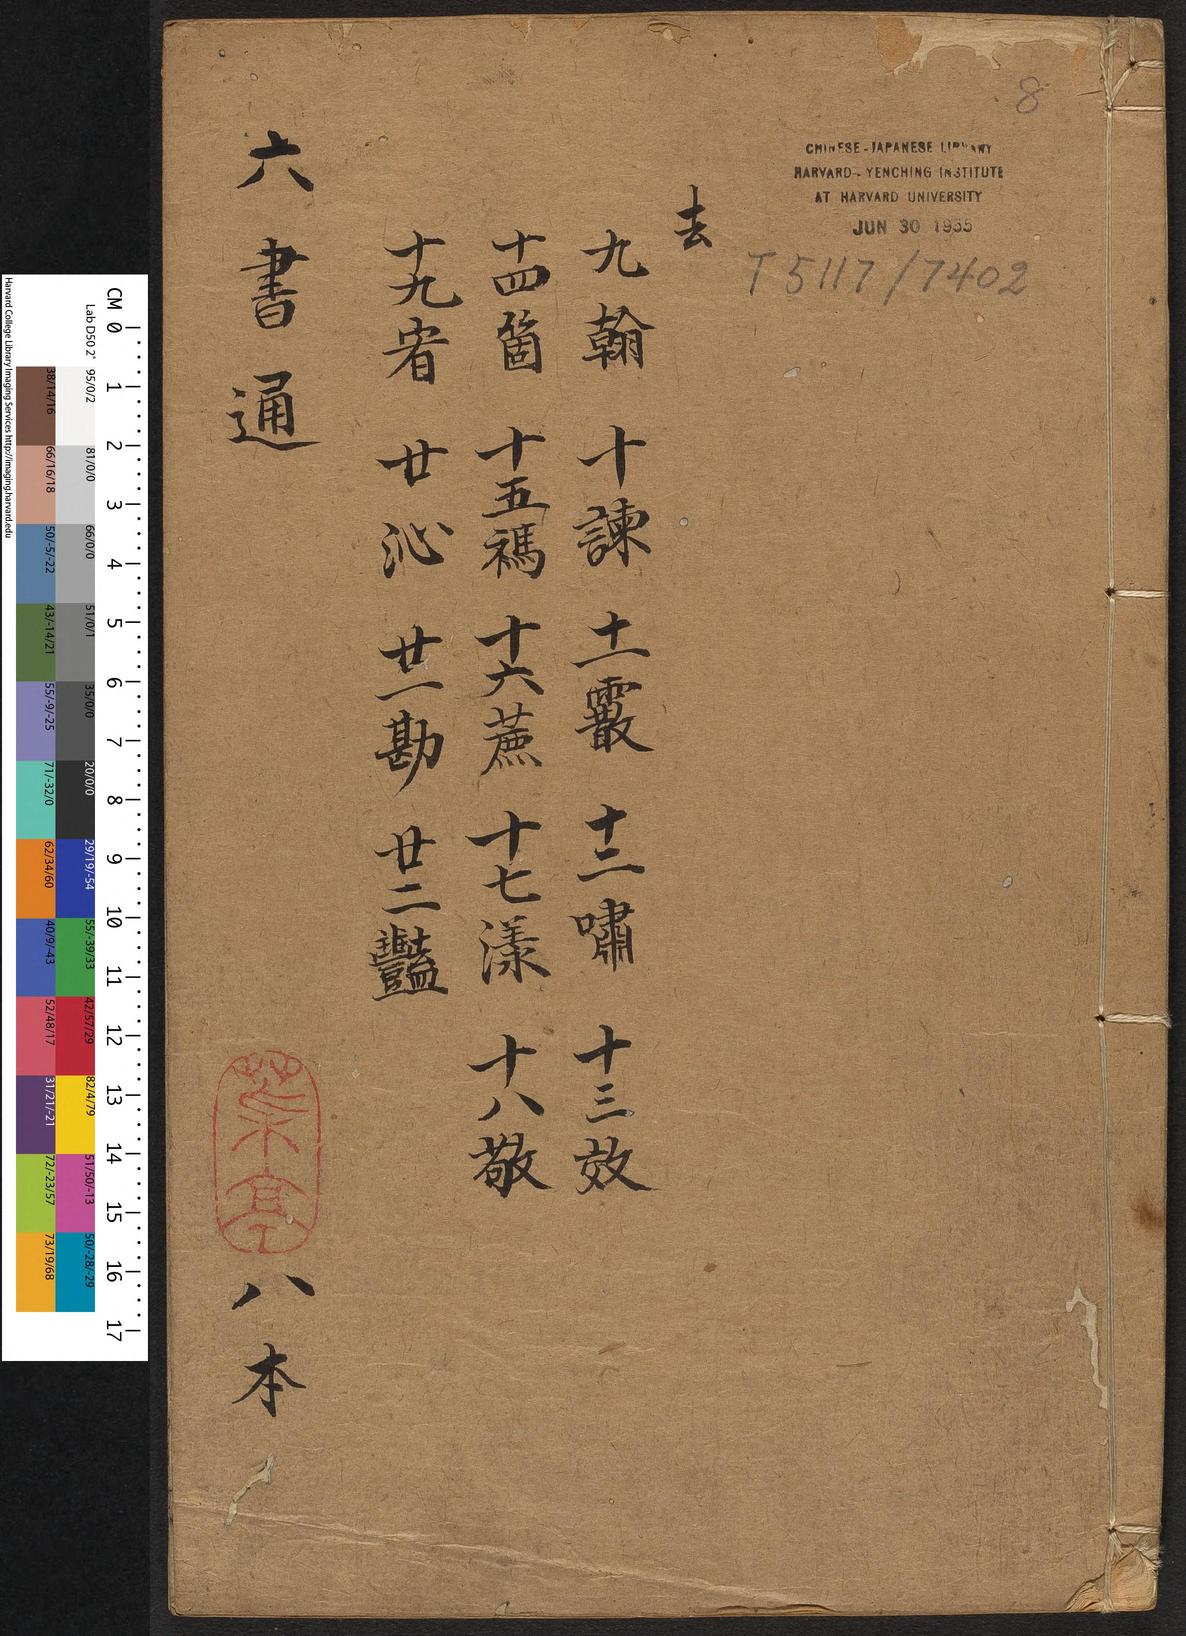 8
CHINESE-JAPANESE LIBRARY
HARVARD-YENCHING INSTITUTE
AT HARVARD UNIVERSITY
JUN 30 1955
T5117/7402
去
九翰 十諫 十一霰 十二嘯 十三效
十四箇 十五禡 十六蔗 十七漾 十八敬
十九宥 廿沁 廿一勘 廿二豔
六書通
八本
CM 0 1 2 3 4 5 6 7 8 9 10 11 12 13 14 15 16 17
Lab D50 2° 95/0/2 81/0/0 66/0/0 51/0/1 35/0/0 20/0/0 29/19/-54 55/-39/33 42/57/29 82/4/79 51/50/-13 50/-28/-29
38/14/16 66/16/18 50/-5/-22 43/-14/21 55/-9/-25 71/-32/0 62/34/60 40/9/-43 52/48/17 31/21/-21 72/-23/57 73/19/68
Harvard College Library Imaging Services http://imaging.harvard.edu